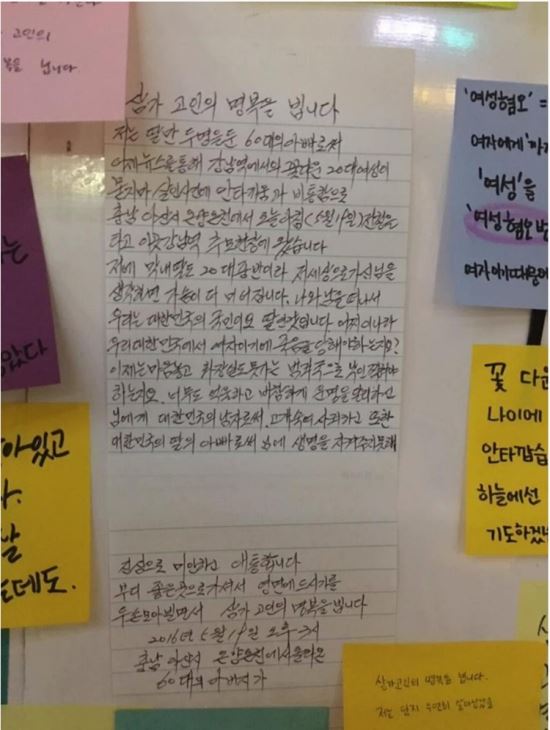 고인의
빕니다.
삼가 고인의 명복을 빕니다
저는 딸만 두명을둔 60대의아빠로써
어제뉴스를통해 강남역에서의 꽃다운 20대여성이
묻지마 살인사건에 안타까움과 비통함으로
충남 아산시 온양온천에서 오늘아침(5월19일)전철을
타고 이곳강남역 추모현장에 왔습니다
저에 막내딸도 20대중반이라 저세상으로가신님을
생각하면 가슴이 더 미어집니다. 나와 남을 떠나서
우리는 대한민국의 국민이요 딸
우리대한민국에서 여자이기에 죽음을 당해야하는지요?
이제는마음놓고 화장실도못가는
하는지요. 너무도 억울하고 비참하게 운명을 달리하신
님에게 대한민국의 남자로써 고개숙여 사죄하고 또한
대한민국의 딸의 아빠로써 님에 생명을 지켜주지못해
진심으로 미안하고 애통합니다
부디 좋은곳으로가셔서 영면에드시기를
두손모아빌면서 삼가 고인의 명복을 빕니다
2016년 5월 19일 오후 3시
충남 아산시 온양온천에서올라온
60대의 아버지가
'여성혐오' =
여자에게
'여성'을
'여성혐오
여자이기때문에
는
았다
아있고
다.
날
는데도.
꽃 다운
나이에
안타깝습
하늘에선
기도하겠
삼가고인의 명복을 빕니다.
저는 단지 우연히 살아남았을